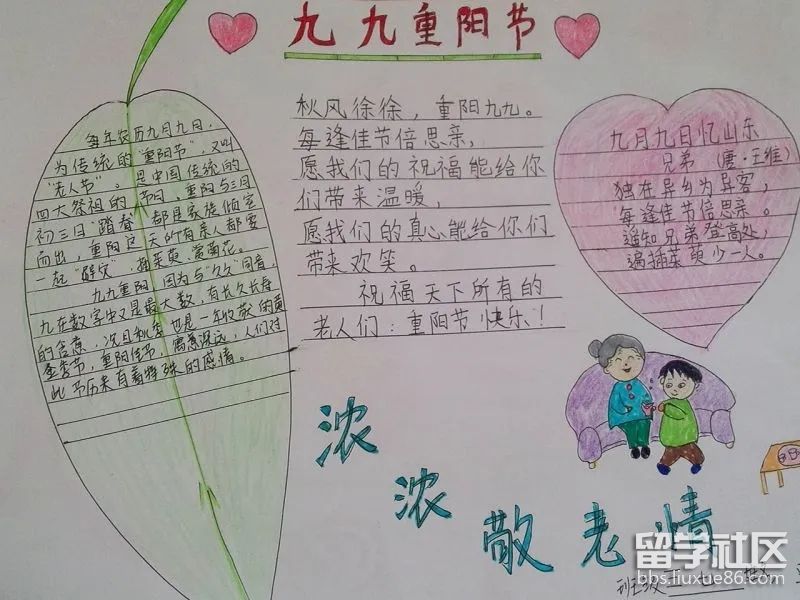 九九重阳节
每年农历九月九日,
为传统的"重阳节",又叫
"老人节"。是中国传统的
四大祭祖的节日,重阳与三月
初三日"踏春"都是家族倾室
而出,重阳这天所有亲人都要
一起"避灾",插茱萸、赏菊花。
九九重阳,因为与"久久"同音,
九在数字中又是最大数,有长久长寿
的含意,况且秋季也是一年收获的黄
金季节,重阳佳节,寓意深远,人们对
此节历来有着特殊的感情。
秋风徐徐,重阳九九。
每逢佳节倍思亲,
愿我们的祝福能给你
们带来温暖,
愿我们的真心能给你们
带来欢笑。
祝福天下所有的
老人们:重阳节快乐!
九月九日忆山东
兄弟 (唐·王维)
独在异乡为异客,
每逢佳节倍思亲。
遥知兄弟登高处,
遍插茱萸少一人。
浓
浓
敬老情
班级 七 姓名
留学社区
bbs.liuxue86.com